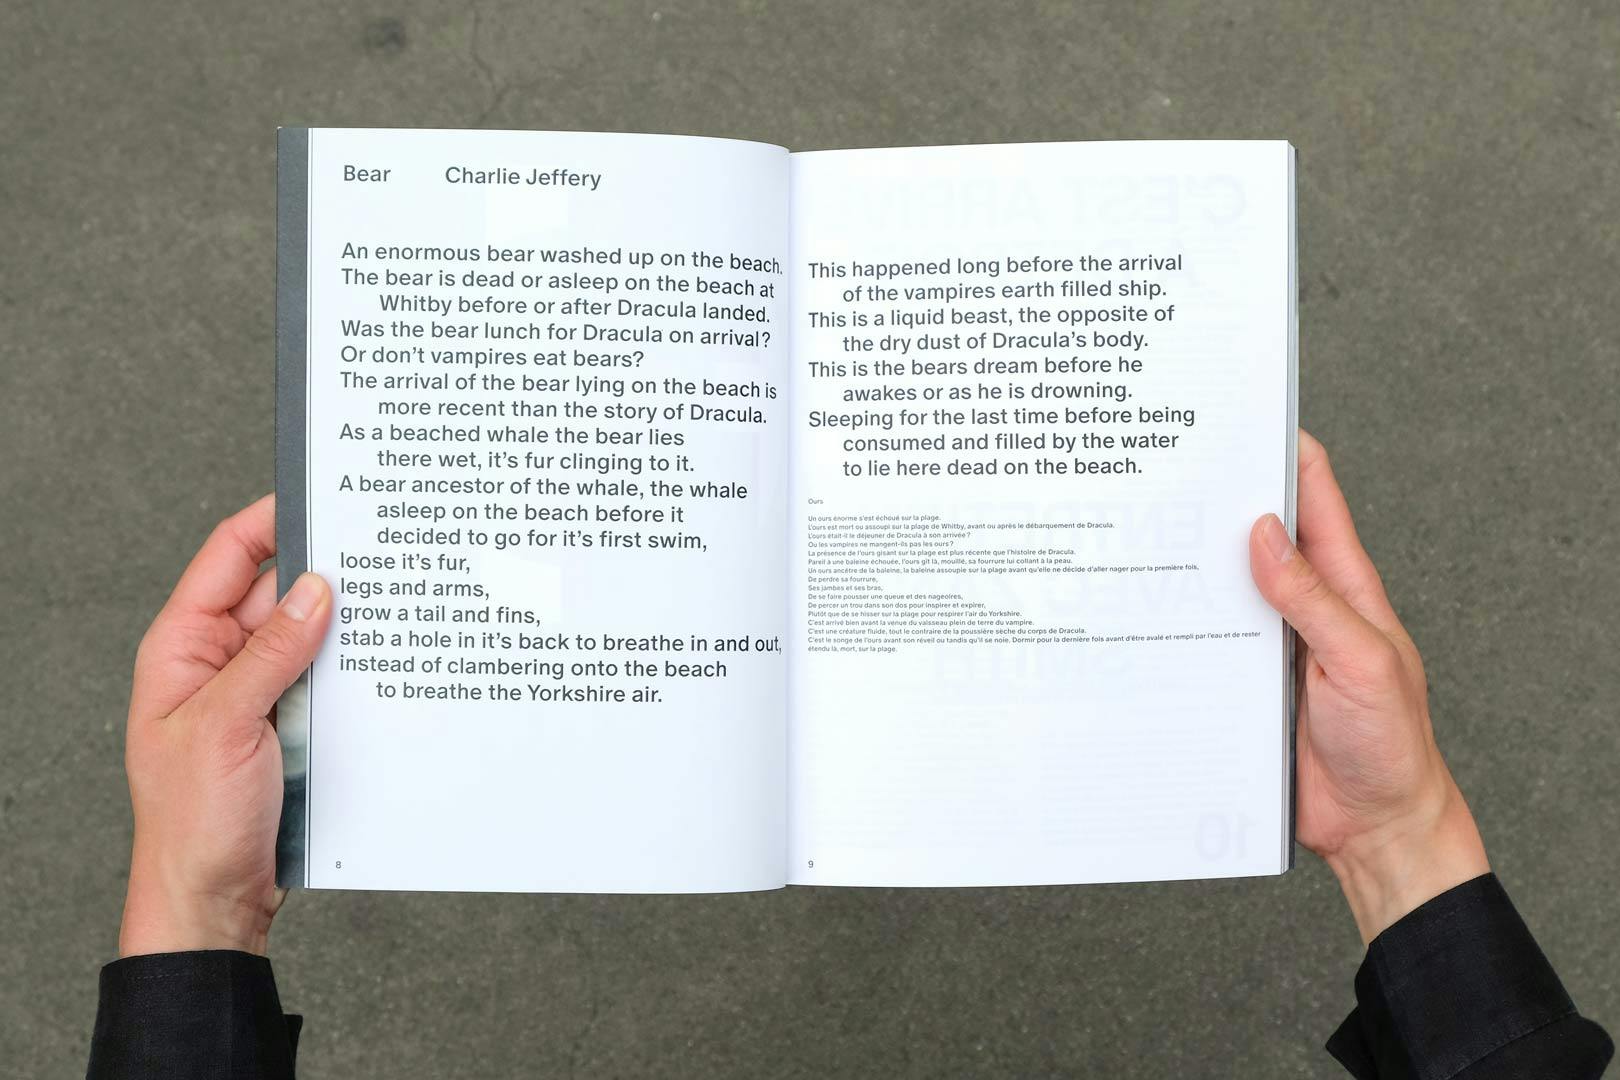 Bear Charlie Jeffery
An enormous bear washed up on the beach.
The bear is dead or asleep on the beach at
Whitby before or after Dracula landed.
Was the bear lunch for Dracula on arrival?
Or don't vampires eat bears?
The arrival of the bear lying on the beach is
more recent than the story of Dracula.
As a beached whale the bear lies
there wet, it's fur clinging to it.
A bear ancestor of the whale, the whale
asleep on the beach before it
decided to go for it's first swim,
loose it's fur,
legs and arms,
grow a tail and fins,
stab a hole in it's back to breathe in and out,
instead of clambering onto the beach
to breathe the Yorkshire air.
8
This happened long before the arrival
of the vampires earth filled ship.
This is a liquid beast, the opposite of
the dry dust of Dracula's body.
This is the bears dream before he
awakes or as he is drowning.
Sleeping for the last time before being
consumed and filled by the water
to lie here dead on the beach.
Ours
Un ours énorme s'est échoué sur la plage.
L'ours est mort ou assoupi sur la plage de Whitby, avant ou après le débarquement de Dracula.
L'ours était-il le déjeuner de Dracula à son arrivée ?
Ou les vampires ne mangent-ils pas les ours ?
La présence de l'ours gisant sur la plage est plus récente que l'histoire de Dracula.
Pareil à une baleine échouée, l'ours gît là, mouillé, sa fourrure lui collant à la peau.
Un ours ancêtre de la baleine, la baleine assoupie sur la plage avant qu'elle ne décide d'aller nager pour la première fois,
De perdre sa fourrure,
Ses jambes et ses bras,
De se faire pousser une queue et des nageoires,
De percer un trou dans son dos pour inspirer et expirer,
Plutôt que de se hisser sur la plage pour respirer l'air du Yorkshire.
C'est arrivé bien avant la venue du vaisseau plein de terre du vampire.
C'est une créature fluide, tout le contraire de la poussière sèche du corps de Dracula.
C'est le songe de l'ours avant son réveil ou tandis qu'il se noie. Dormir pour la dernière fois avant d'être avalé et rempli par l'eau et de rester
étendu là, mort, sur la plage.
9